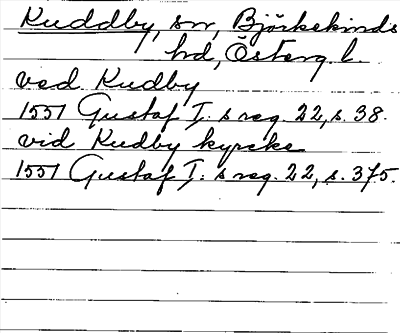 Kuddby, sn, Björkekinds
hd, Österg. l.
vid Kudby
1551 Gustaf I: s reg. 22, s. 38.
vid Kudby kyrcke
1551 Gustaf I: s reg. 22, s. 375.